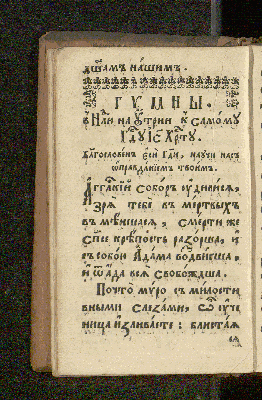 дш҃амъ на́шимъ.
Г У М Н Ы.
на ѹ҆́трни к̾ самомꙋ
Гдⷭ҇ꙋ І҆с҃ Хрⷭ҇тꙋ.
Благослове́нъ є҆сѝ Гдⷭ҇и, наꙋчи насъ
ѡ҆правда́нїемъ твои́мъ.
Агг҃лскїй собо́ръ ᲂу҆диви́сѧ,
зрѧ̀ тебѐ въ ме́ртвыхъ
въмѣни́вшасѧ, сме́рти же
сп҃се крѣ́пость разо́рша, и҆
съ собо́ю А҆да́ма воздви́гша,
и҆ ѿ а҆́да всѧ̀ свобо́ждша.
Почто̀ мѵ́ро съ ми́лости
вными слеза́ми, ѽ ᲂу҆че
ница и҆злива́єте : блиста́ѧ